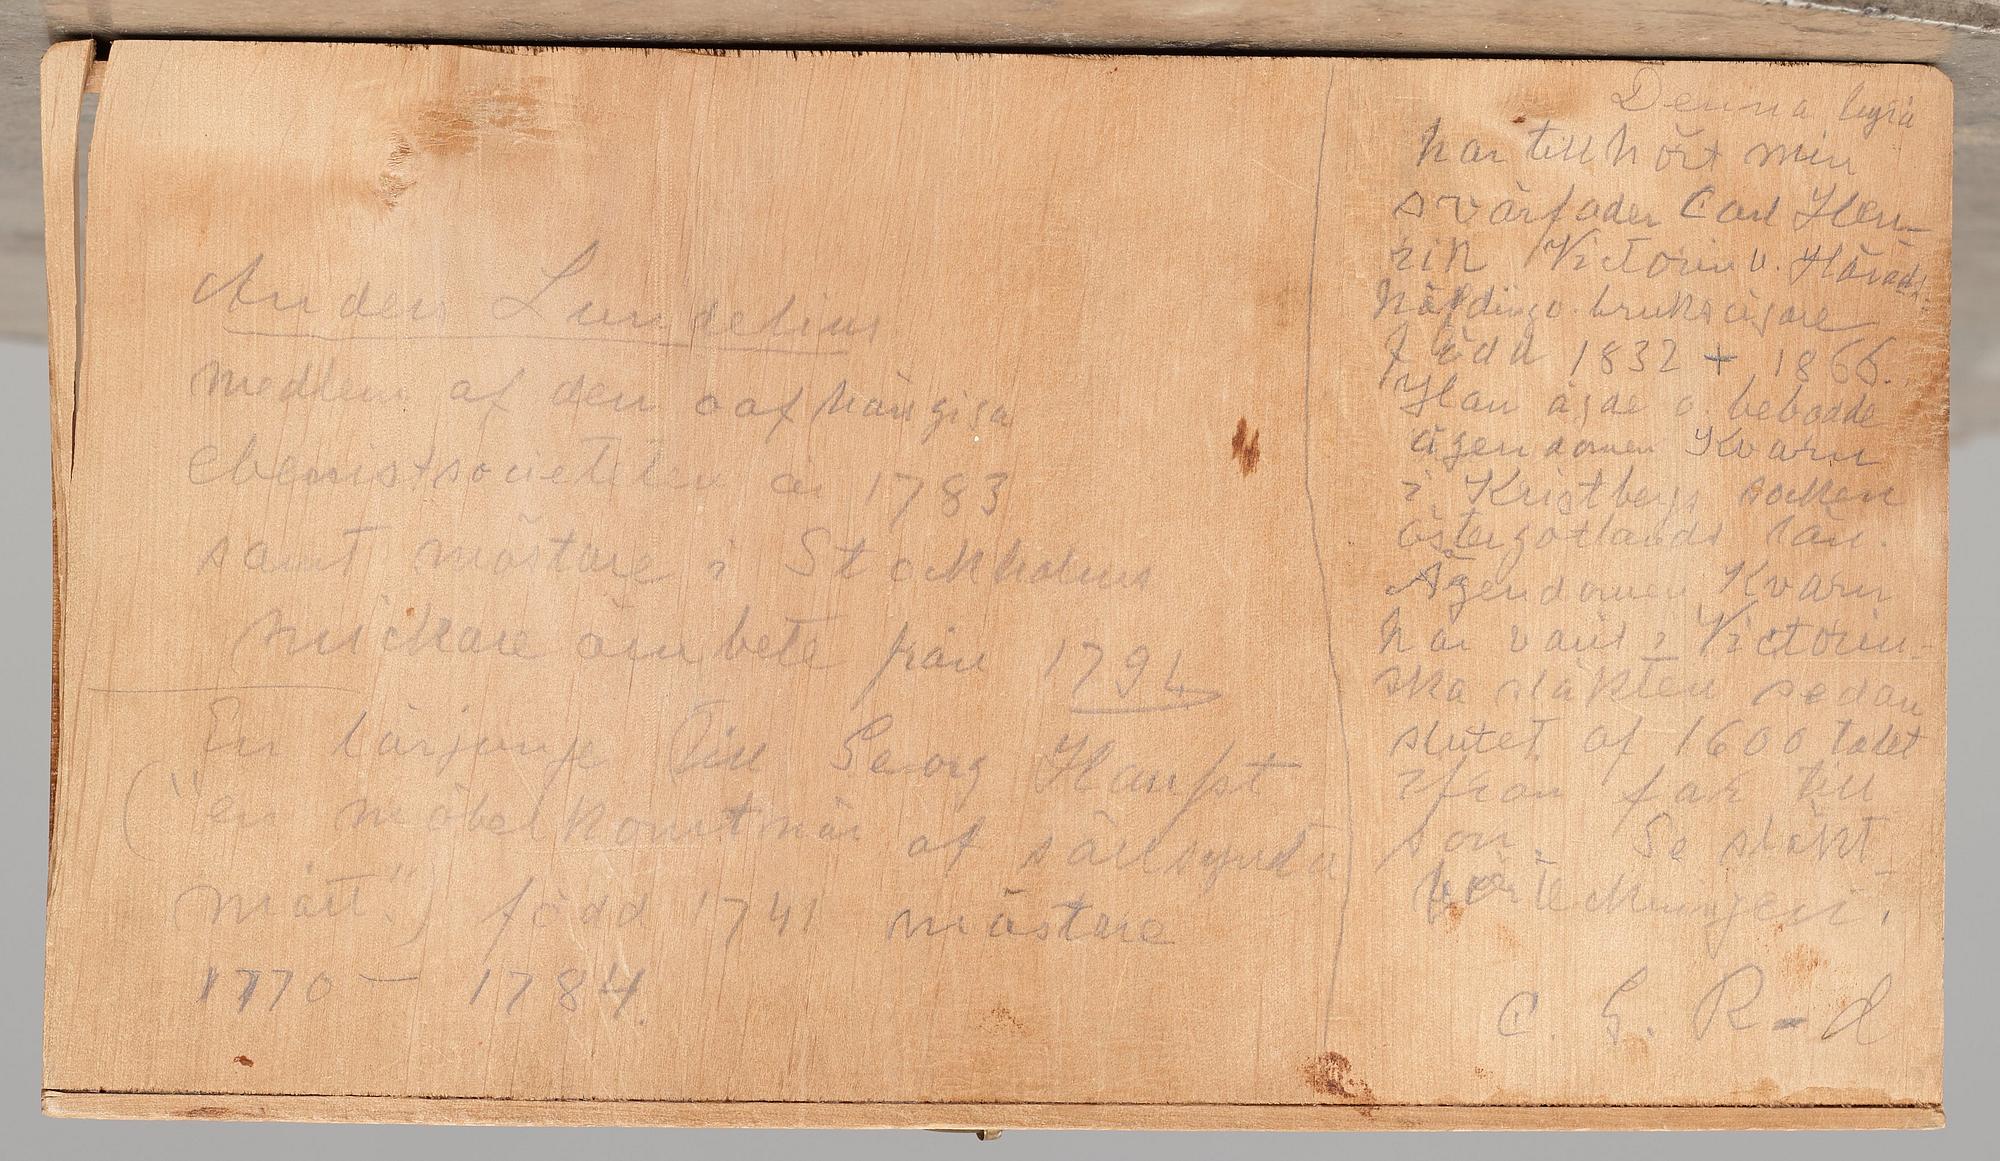 Anders Lundelius
medlem af den oafhängiga
ebenistsocieteten år 1783
samt mästare i Stockholms
snickareämbete från 1794
En lärjunge till Georg Haupt
("en möbelkonstnär af sällsynda
mått") född 1741 mästare
1770 – 1784.
Denna
har tillhört min
svärfader Carl Hen-
rik Victorin v. Härads-
höfding o. bruksägare
född 1832 + 1866.
Han ägde o. bebodde
ägendomen Kvarn
i Kristbergs socken
Östergötlands län.
Ägendomen Kvarn
har varit i Victorin-
ska släkten sedan
slutet af 1600 talet
ifrån far till
son. Se släkt-
förteckningen.
C. G. R-d